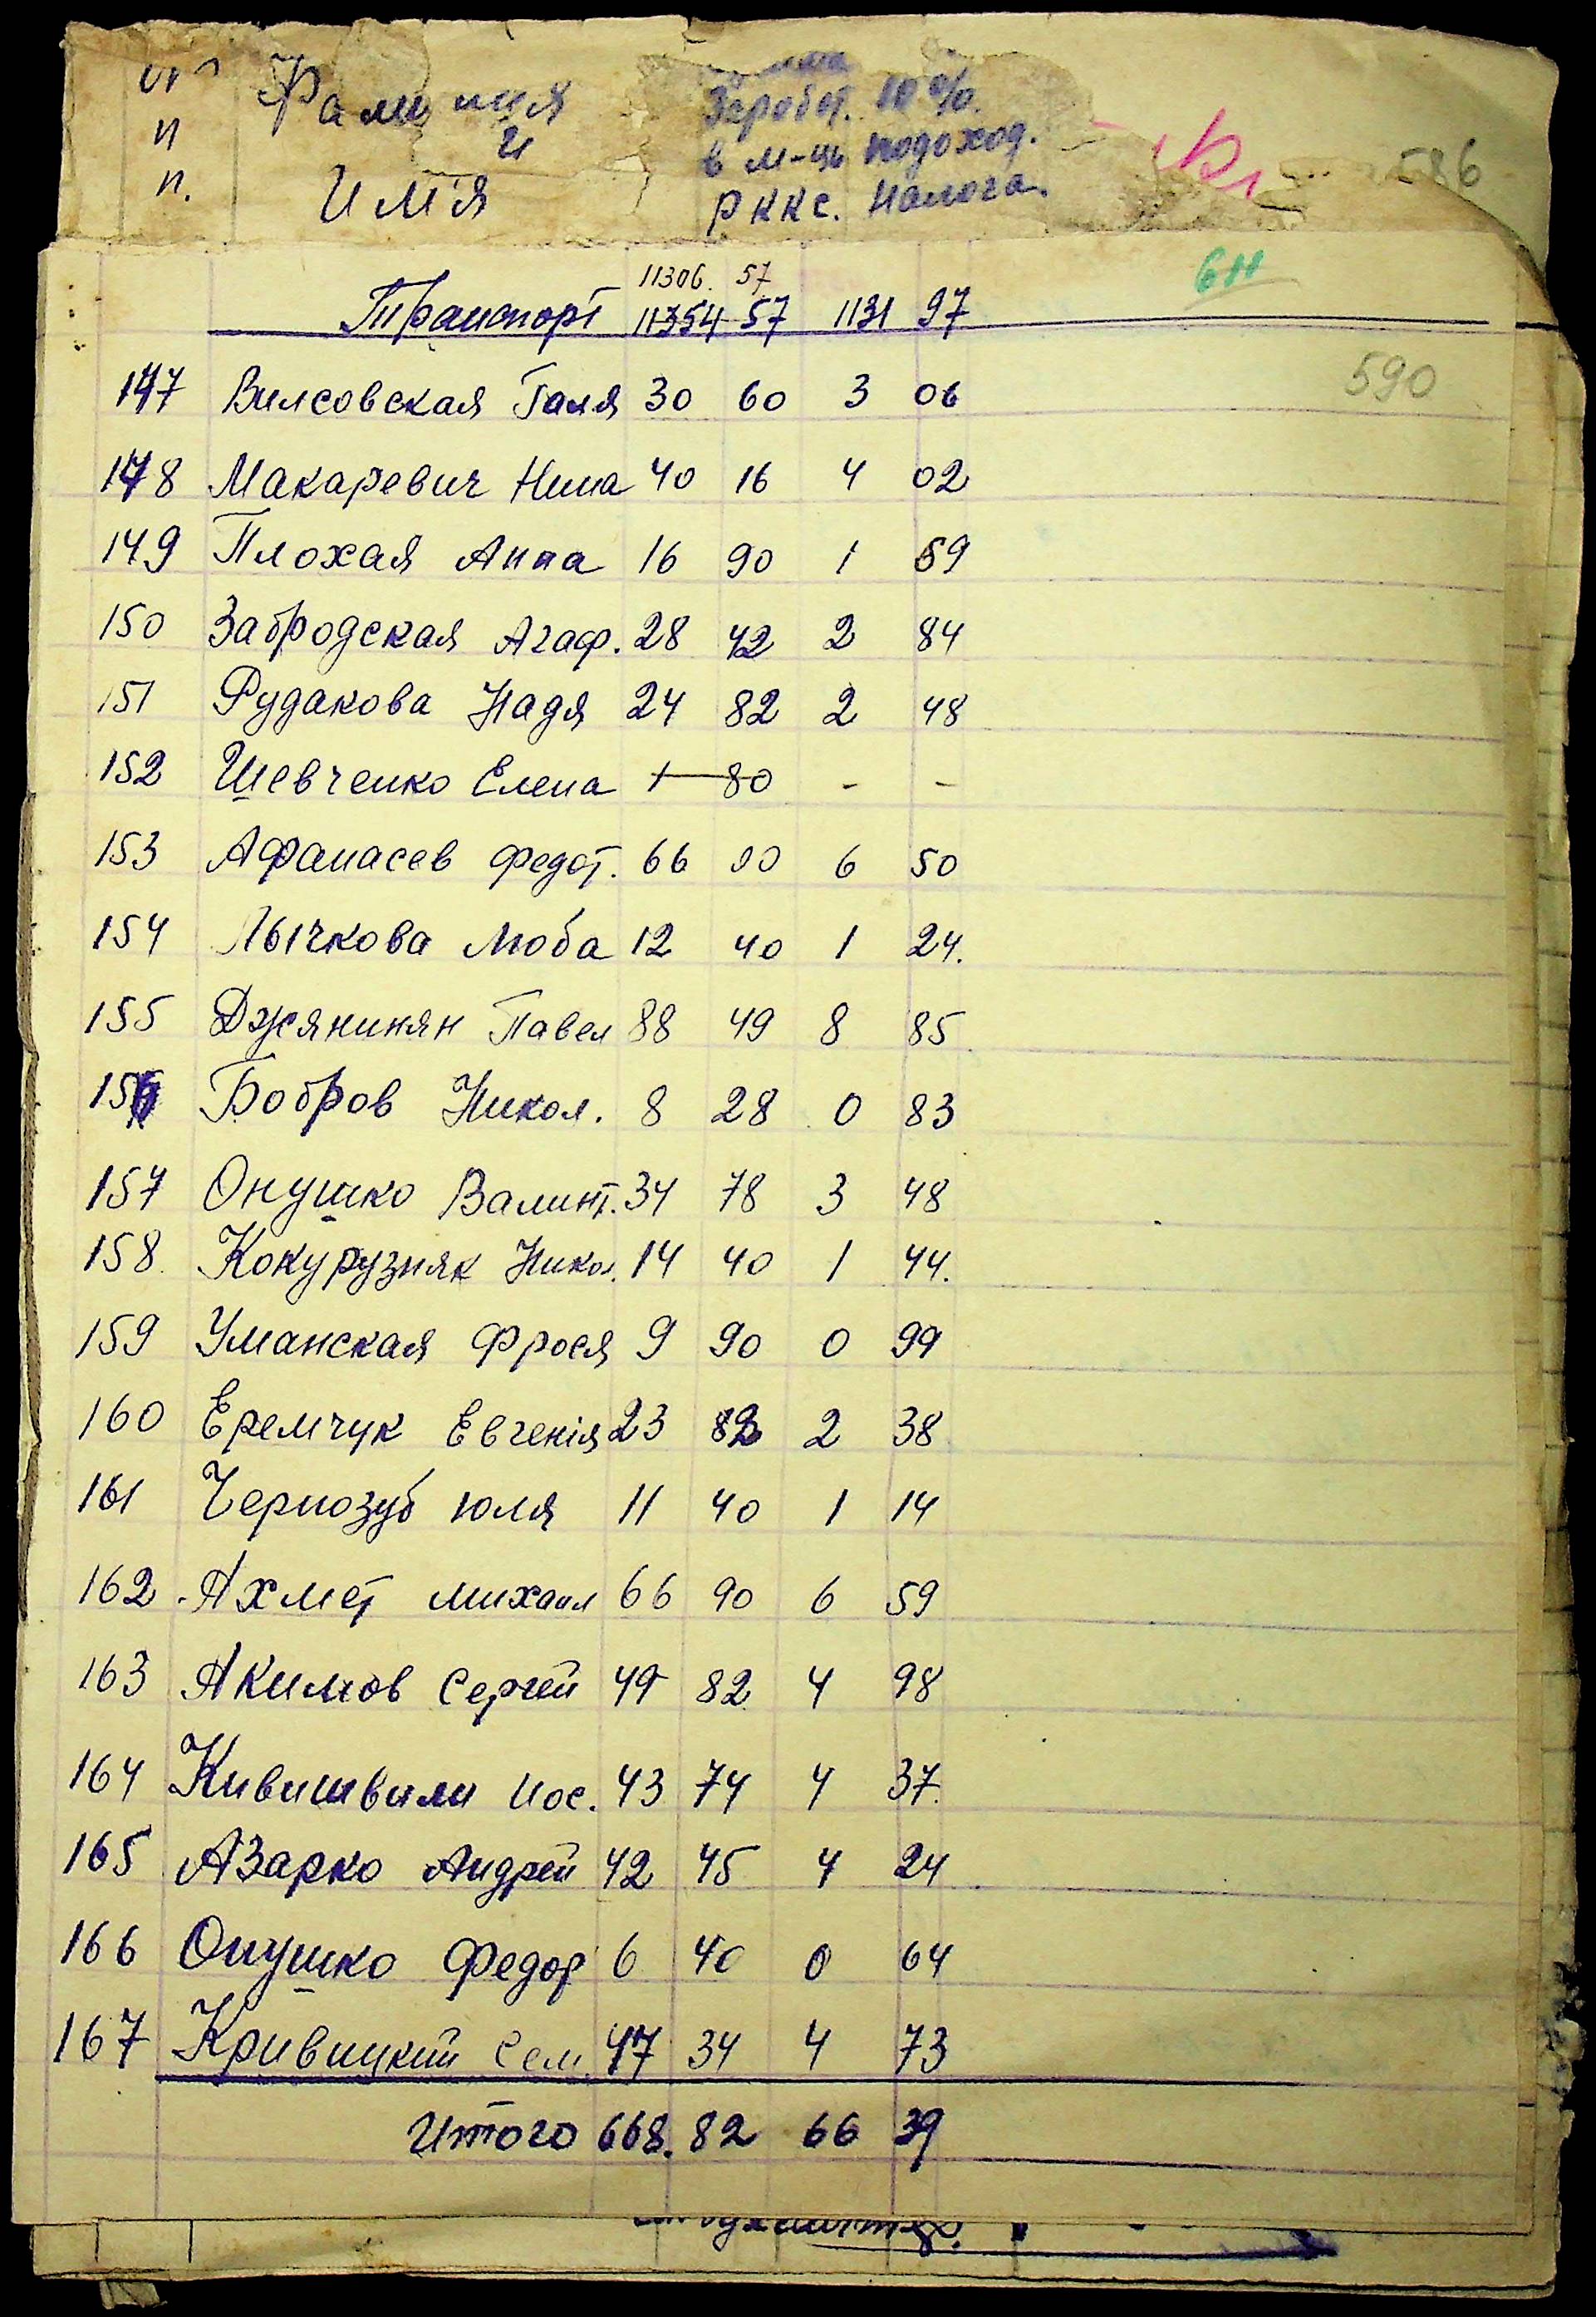 п Фамилия
п. и
Имя
Заробот. 10%.
в м-ць подоход.
РККС. Налога.
586
611
11306. 57
Транспорт 11354 57 1131 97
590
147 Вилсовская Галя 30 60 3 06
148 Макаревич Нина 40 16 4 02
149 Плохая Анна 16 90 1 69
150 Забродская Агаф. 28 42 2 84
151 Рудакова Надя 24 82 2 48
152 Шевченко Елена 1 80 - -
153 Афанасев Федот. 66 00 6 50
154 Лычкова Люба 12 40 1 24.
155 Джянинян Павел 88 49 8 85
156 Бобров Никол. 8 28 0 83
157 Онушко Валинт. 34 78 3 48
158. Кокурузняк Никол. 14 40 1 44.
159 Уманская Фрося 9 90 0 99
160 Еремчук Евгенія 23 83 2 38
161 Чернозуб Юля 11 40 1 14
162. Ахмет Михаил 66 90 6 59
163 Акимов Сергей 49 82 4 98
164 Кивишвили Иос. 43 74 4 37.
165 Азарко Андрей 42 45 4 24
166 Онушко Федор 6 40 0 64
167 Кривицкий Сем. 47 34 4 73
Итого 668. 82 66 39